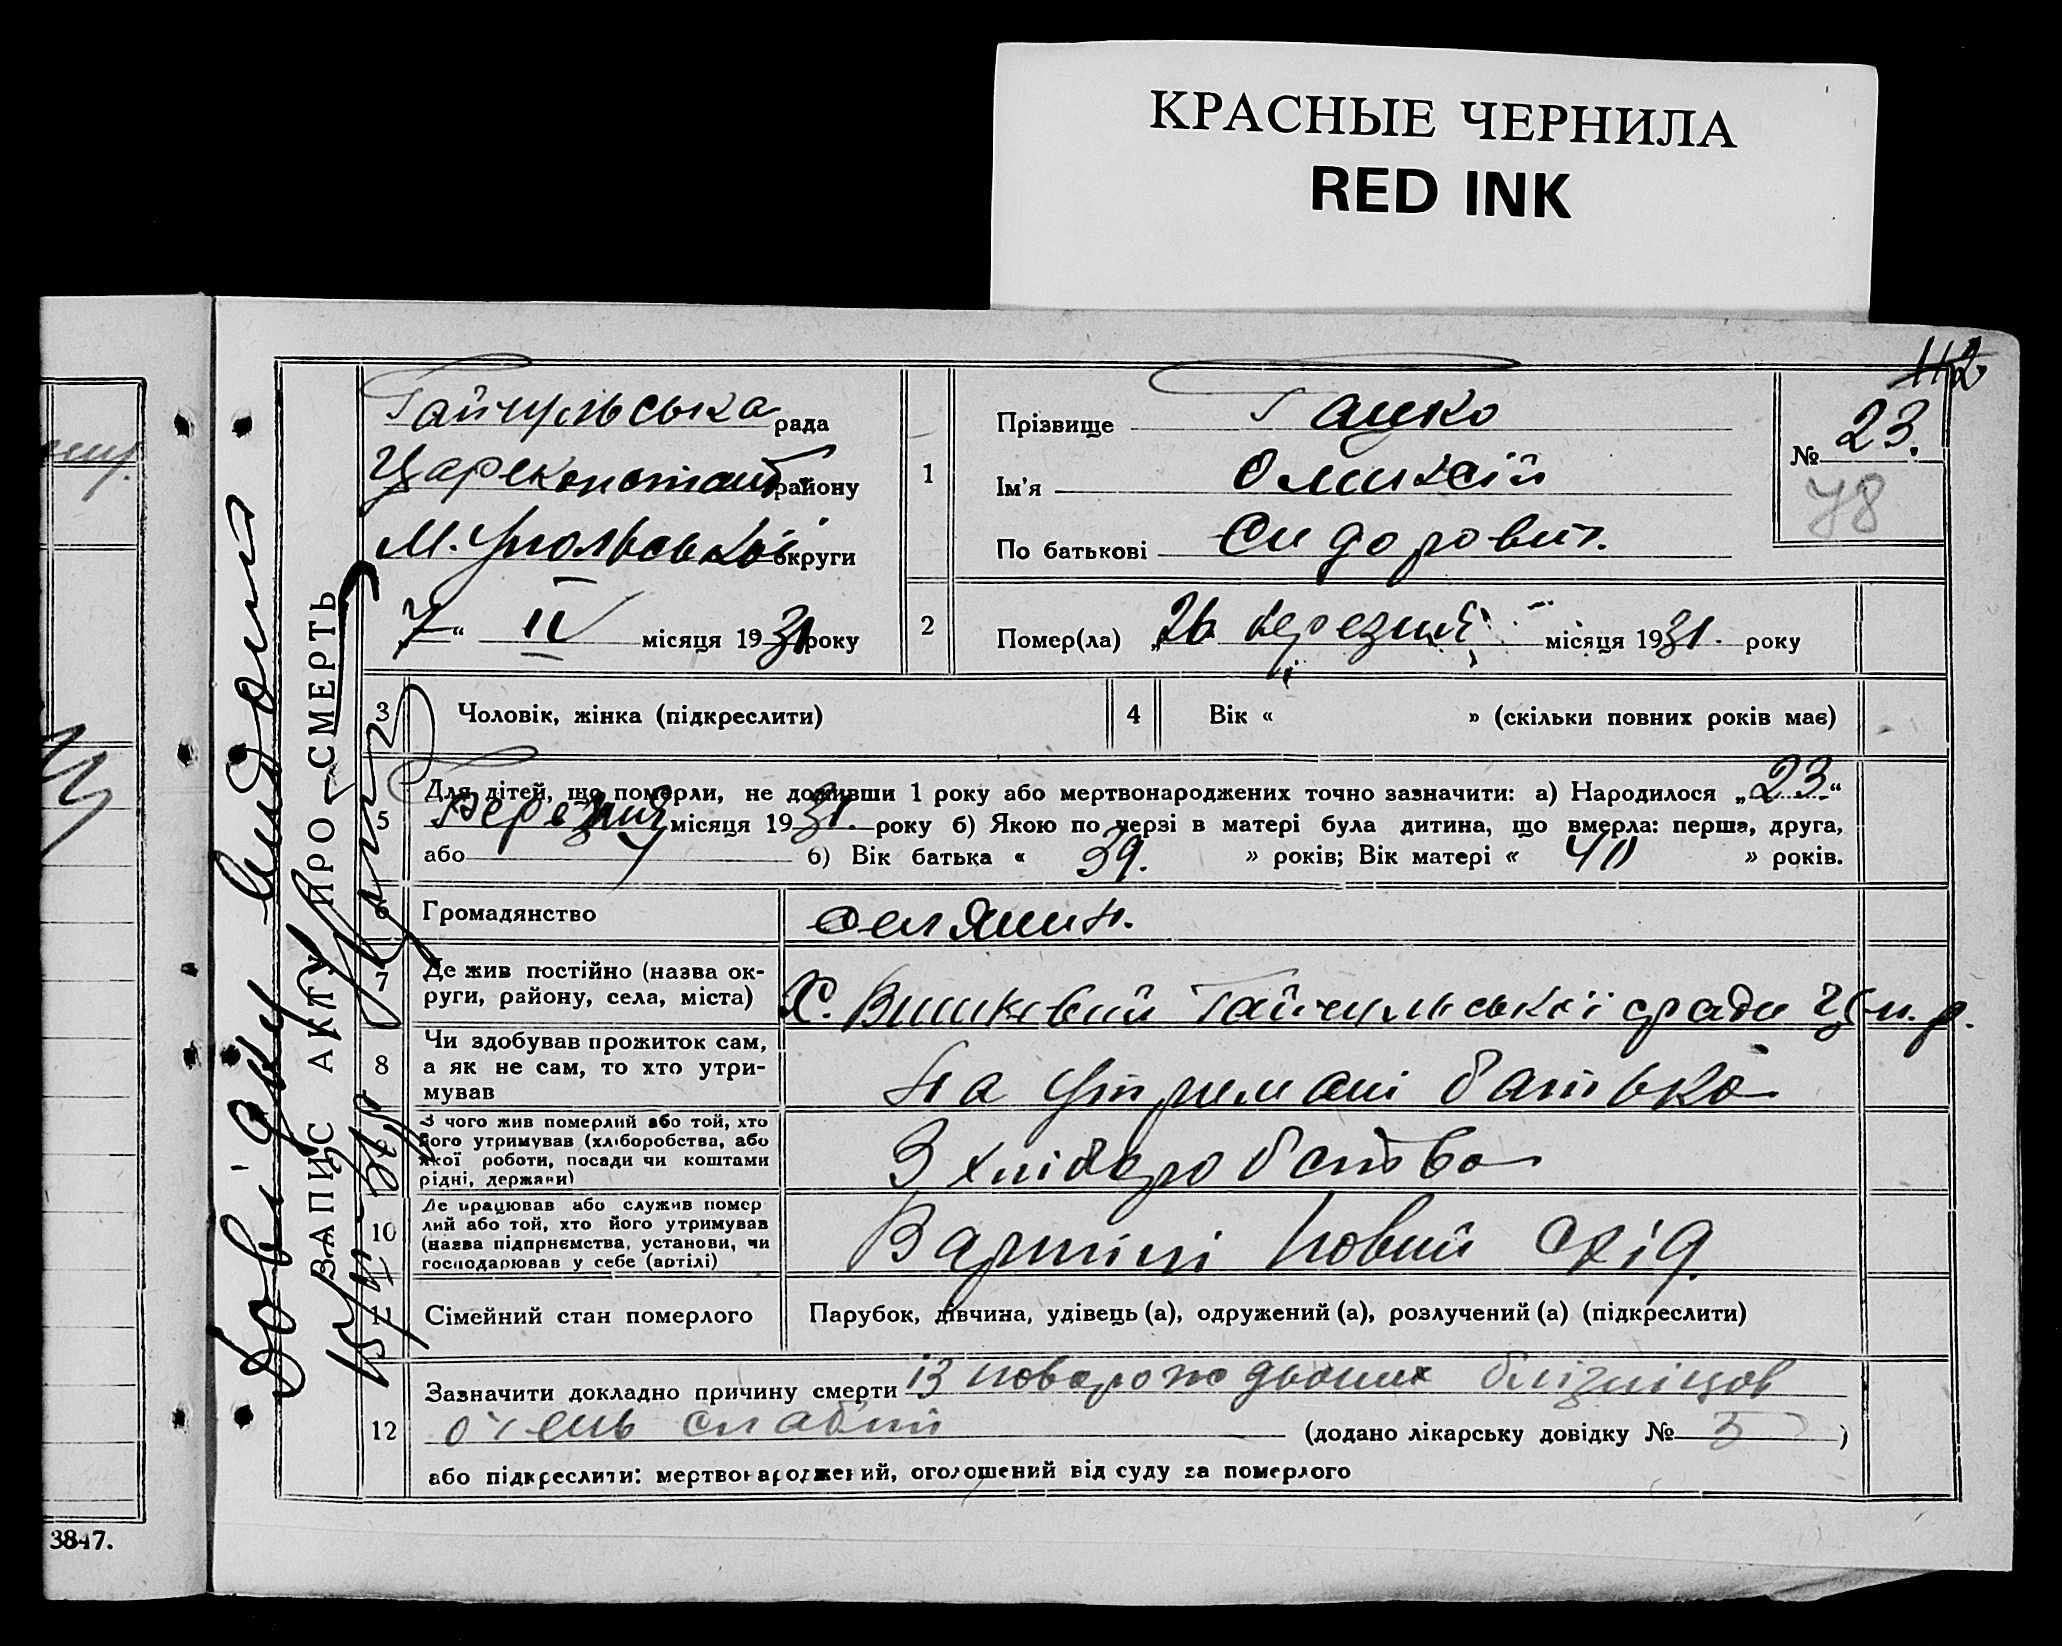 КРАСНЫЕ ЧЕРНИЛА
RED INK
112
Гайчульська рада
Царекостант району
М. Упольської округи
7 " IV місяця 1931 року
1
Прізвище Гацко
Ім'я Оликсій
По батькові Сидорович.
№ 23.
78
2
Помер(ла) „26 березня місяця 1931. року
3
Чоловік, жінка (підкреслити)
4
Вік « » (скільки повних років має)
5
Для дітей, що померли, не доживши 1 року або мертвонароджених точно зазначити: а) Народилося „23“
Березня місяця 1931. року б) Якою по черзі в матері була дитина, що вмерла: перша, друга,
або б) Вік батька « 39. » років; Вік матері « 40 » років.
6
Громадянство
селянин.
7
Де жив постійно (назва округи, району, села, міста)
Х. Вишневий Гайчульської сради Ц.к. р.
8
Чи здобував прожиток сам,
а як не сам, то хто утримував
На утримані батька
9
З чого жив померлий або той, хто
його утримував (хліборобства, або
якої роботи, посади чи коштами
рідні, держави)
З хліборобства
10
Де працював або служив помер
лий або той, хто його утримував
(назва підприємства, установи, чи
господарював у себе (артілі)
Вартілі Новий схід.
11
Сімейний стан померлого
Парубок, дівчина, удівець (а), одружений (а), розлучений (а) (підкреслити)
12
Зазначити докладно причину смерти із новорожодьоних близніцов
очень слабий (додано лікарську довідку № 5)
або підкреслити: мертвонароджений, оголошений від суду за померлого
ЗАПИС АКТУ ПРО СМЕРТЬ
Довідку видоно
3847.